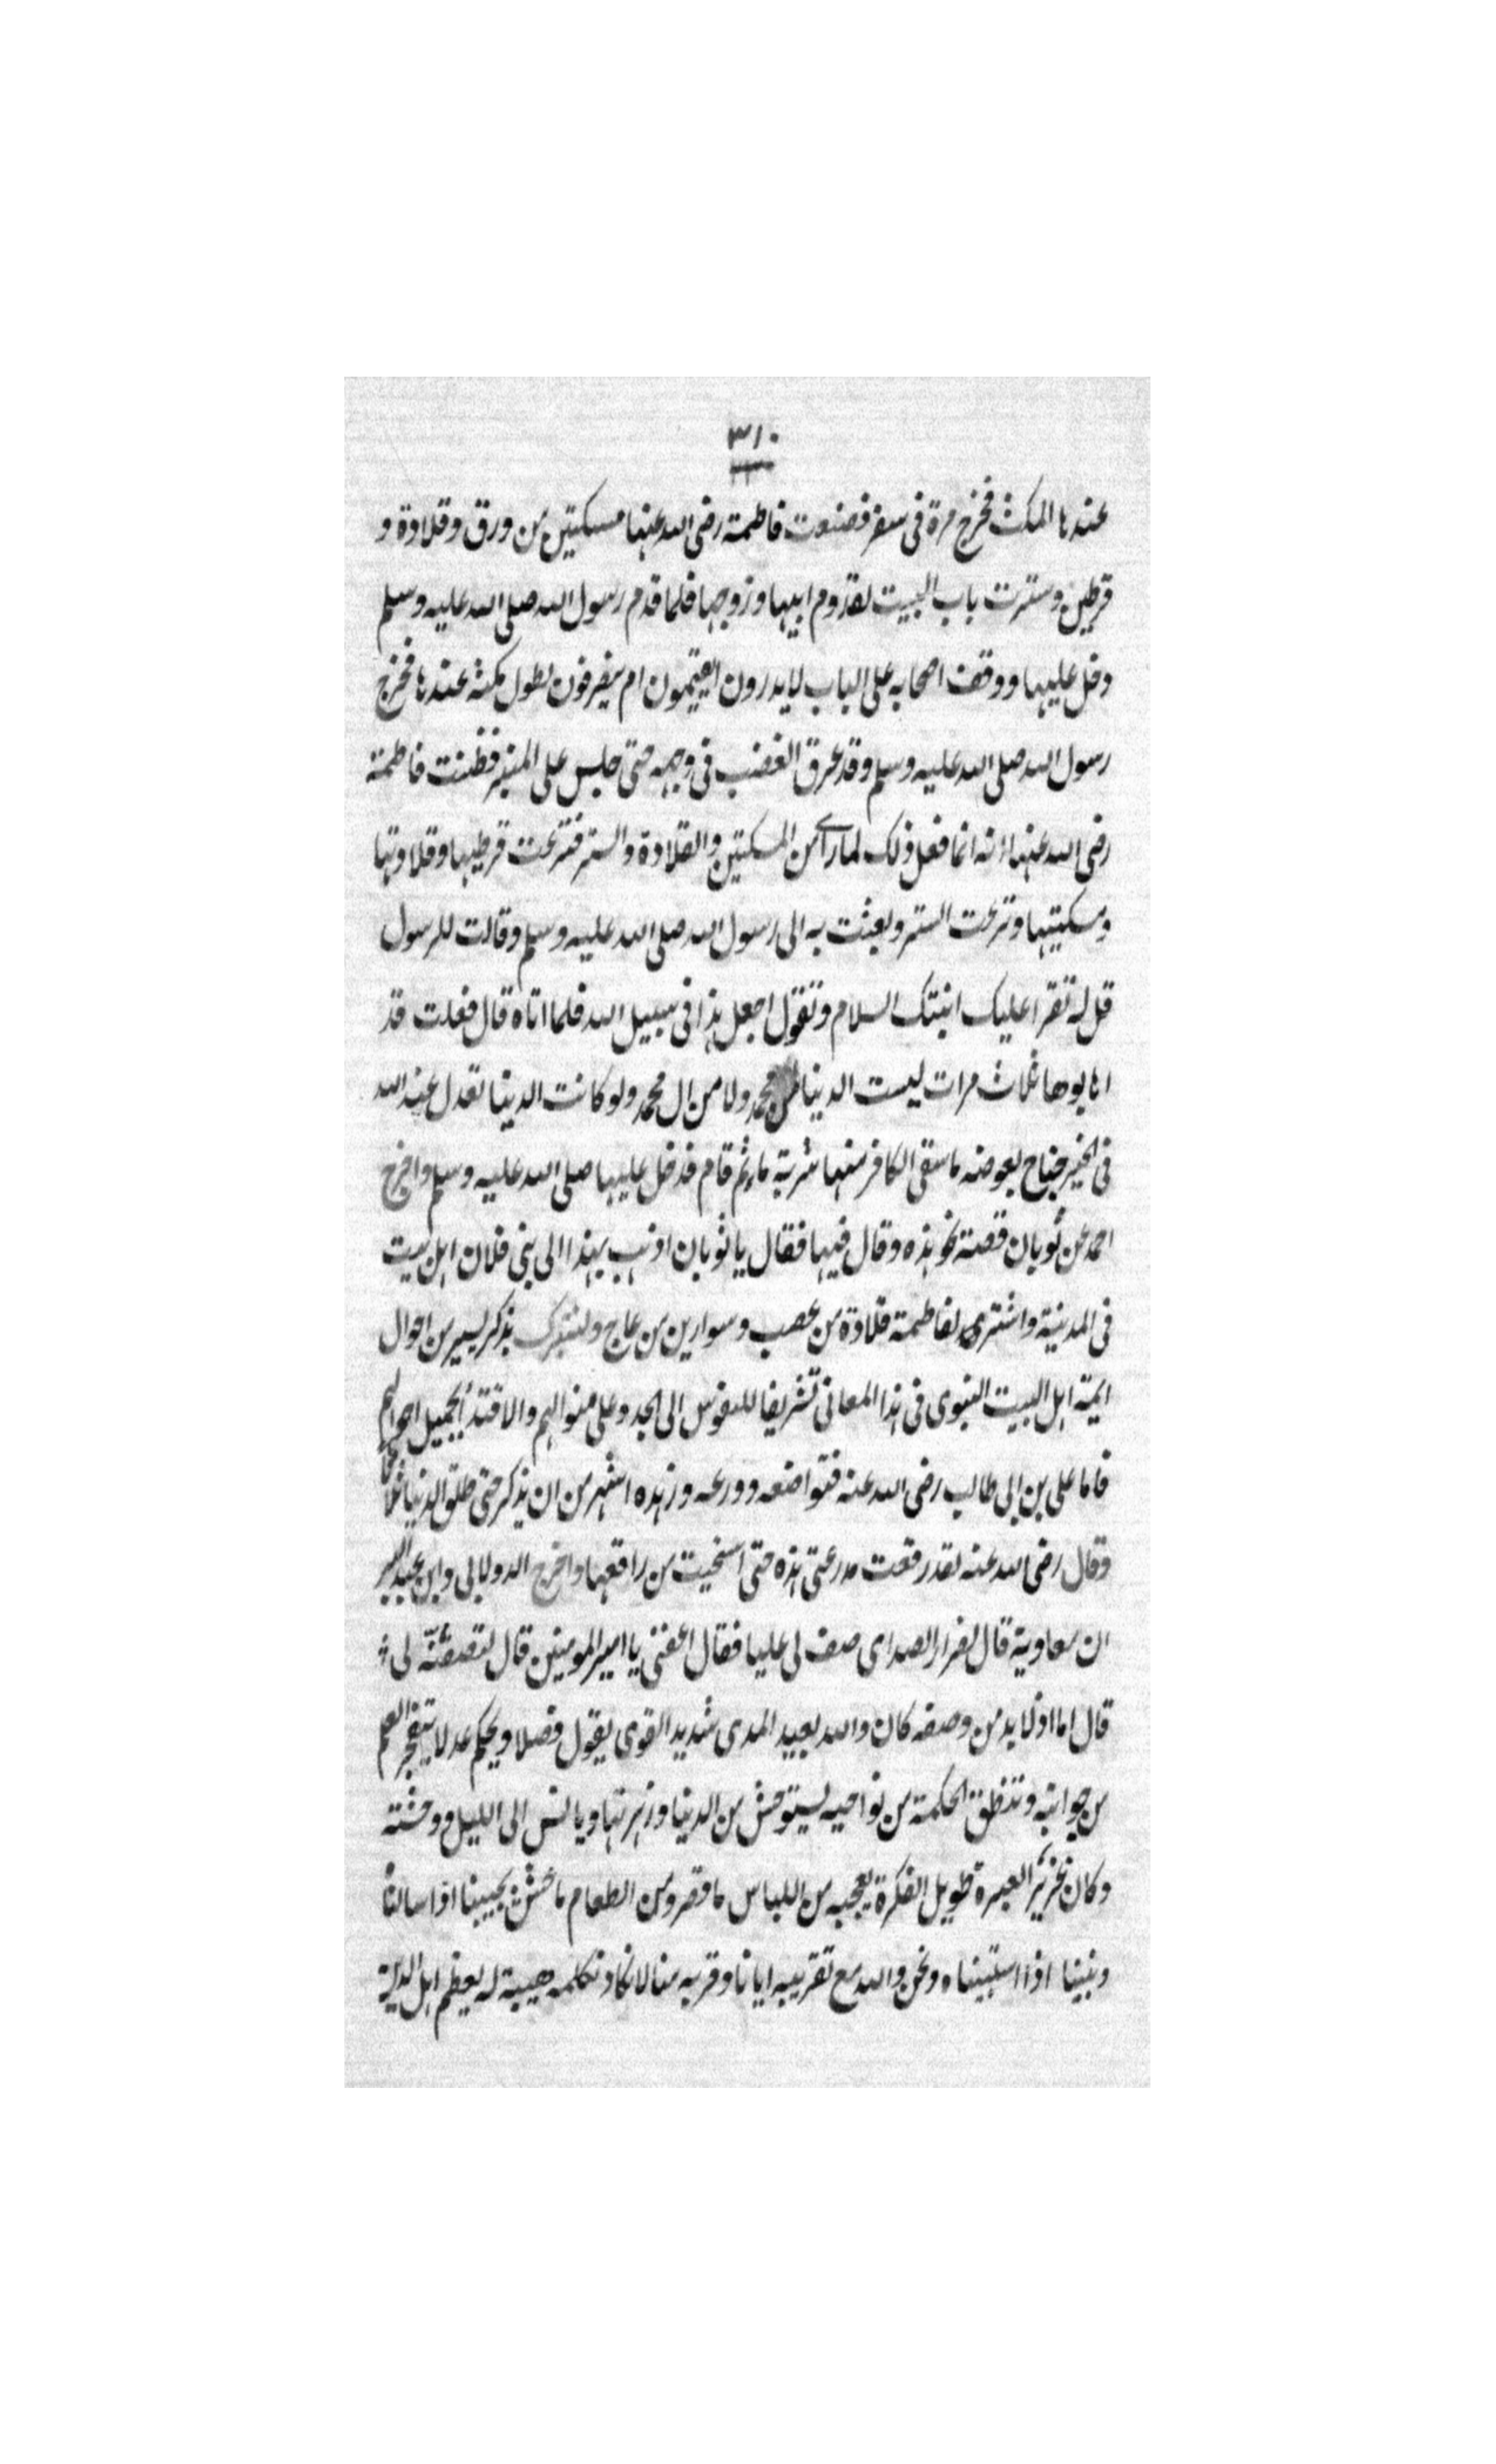 ٣١٠
عندها المكث فخرج مرة فى سفر فصنعت فاطمة رضى الله عنها مسكتين من ورق وقلادة و
قرطين وسترت باب البيت لقدوم ابيها وزوجها فلما قدم رسول الله صلى الله عليه وسلم
دخل عليها ووقف اصحابه على الباب لا يدرون ايقيمون ام ينصرفون لطول مكثه عندها فخرج
رسول الله صلى الله عليه وسلم وقد عرق الغضب فى وجهه حتى جلس على المنبر فظنت فاطمة
رضى الله عنها انه انما فعل ذلك لما رأى من المسكتين والقلادة والستر فنزعت قرطيها وقلادتها
ومسكيتيها ونزعت الستر وبعثت به الى رسول الله صلى الله عليه وسلم وقالت للرسول
قل له تقرا عليك ابنتك السلام وتقول اجعل هذا فى سبيل الله فلما اتاه قال فعلت قد
اها بوها ثلاث مرات ليست الدنيا من محمد ولا من ال محمد ولو كانت الدنيا تعدل عند الله
فى الخير جناح بعوضه ما سقى الكافر منها شربة ماء ثم قام فدخل عليها صلى الله عليه وسلم واخرج
احمد عن ثوبان قصة نحو هذه وقال فيها فقال يا ثوبان اذهب بهذا الى بنى فلان اهل بيت
فى المدينة واشترى لفاطمة قلادة من عصب وسوارين من عاج ولنتبرك بذكر يسير من احوال
ايمة اهل البيت النبوى فى هذا المعانى تشريفا للنفوس الى الجد وعلى منوالهم والاقتدأ بجميل احوالهم
فاما على بن ابى طالب رضى الله عنه فتواضعه وورعه وزهده اشهر من ان يذكر حتى طلق الدنيا ثلاثا
وقال رضى الله عنه لقد رقعت مدرعتى هذه حتى استحيت من راقعها واخرج الدولابى وابن عبد البر
ان معاوية قال لضرار الصداى صف لى عليا فقال اعفنى يا امير المومنين قال لتصفنّه لى
قال اما اذ لا بد من وصفه كان والله بعيد المدى شديد القوى يقول فصلا ويحكم عدلا يتفجر العلم
من جوانبه وتنطق الحكمة من نواحيه يستوحش من الدنيا وزهرتها ويانس الى الليل ووحشته
وكان غزير العبرة طويل الفكرة يعجبه من اللباس ما قصر ومن الطعام ما خشن يجيبنا اذا سالناه
وينبينا اذا استنبيناه ونحن والله مع تقريبه ايانا وقربه منا لا نكاد نكلمه هيبة له يعظم اهل الدين